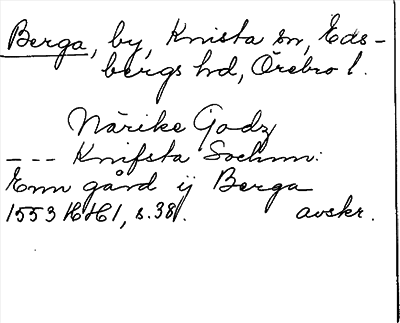 Berga, by, Knista sn, Eds-
bergs hd, Örebro l.
Närike Godz
--- Knifsta Sochnn:
Enn gård ij Berga
1553 HH1, s.38. avskr.